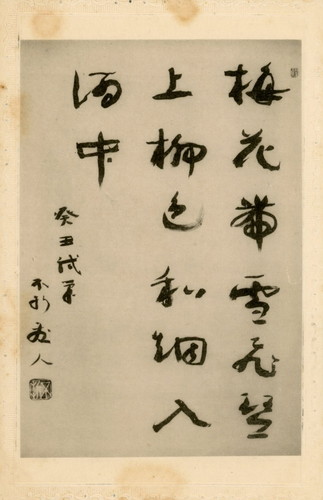 梅花帶雪飛琴
上柳色和烟入
酒中
癸丑試
不折人